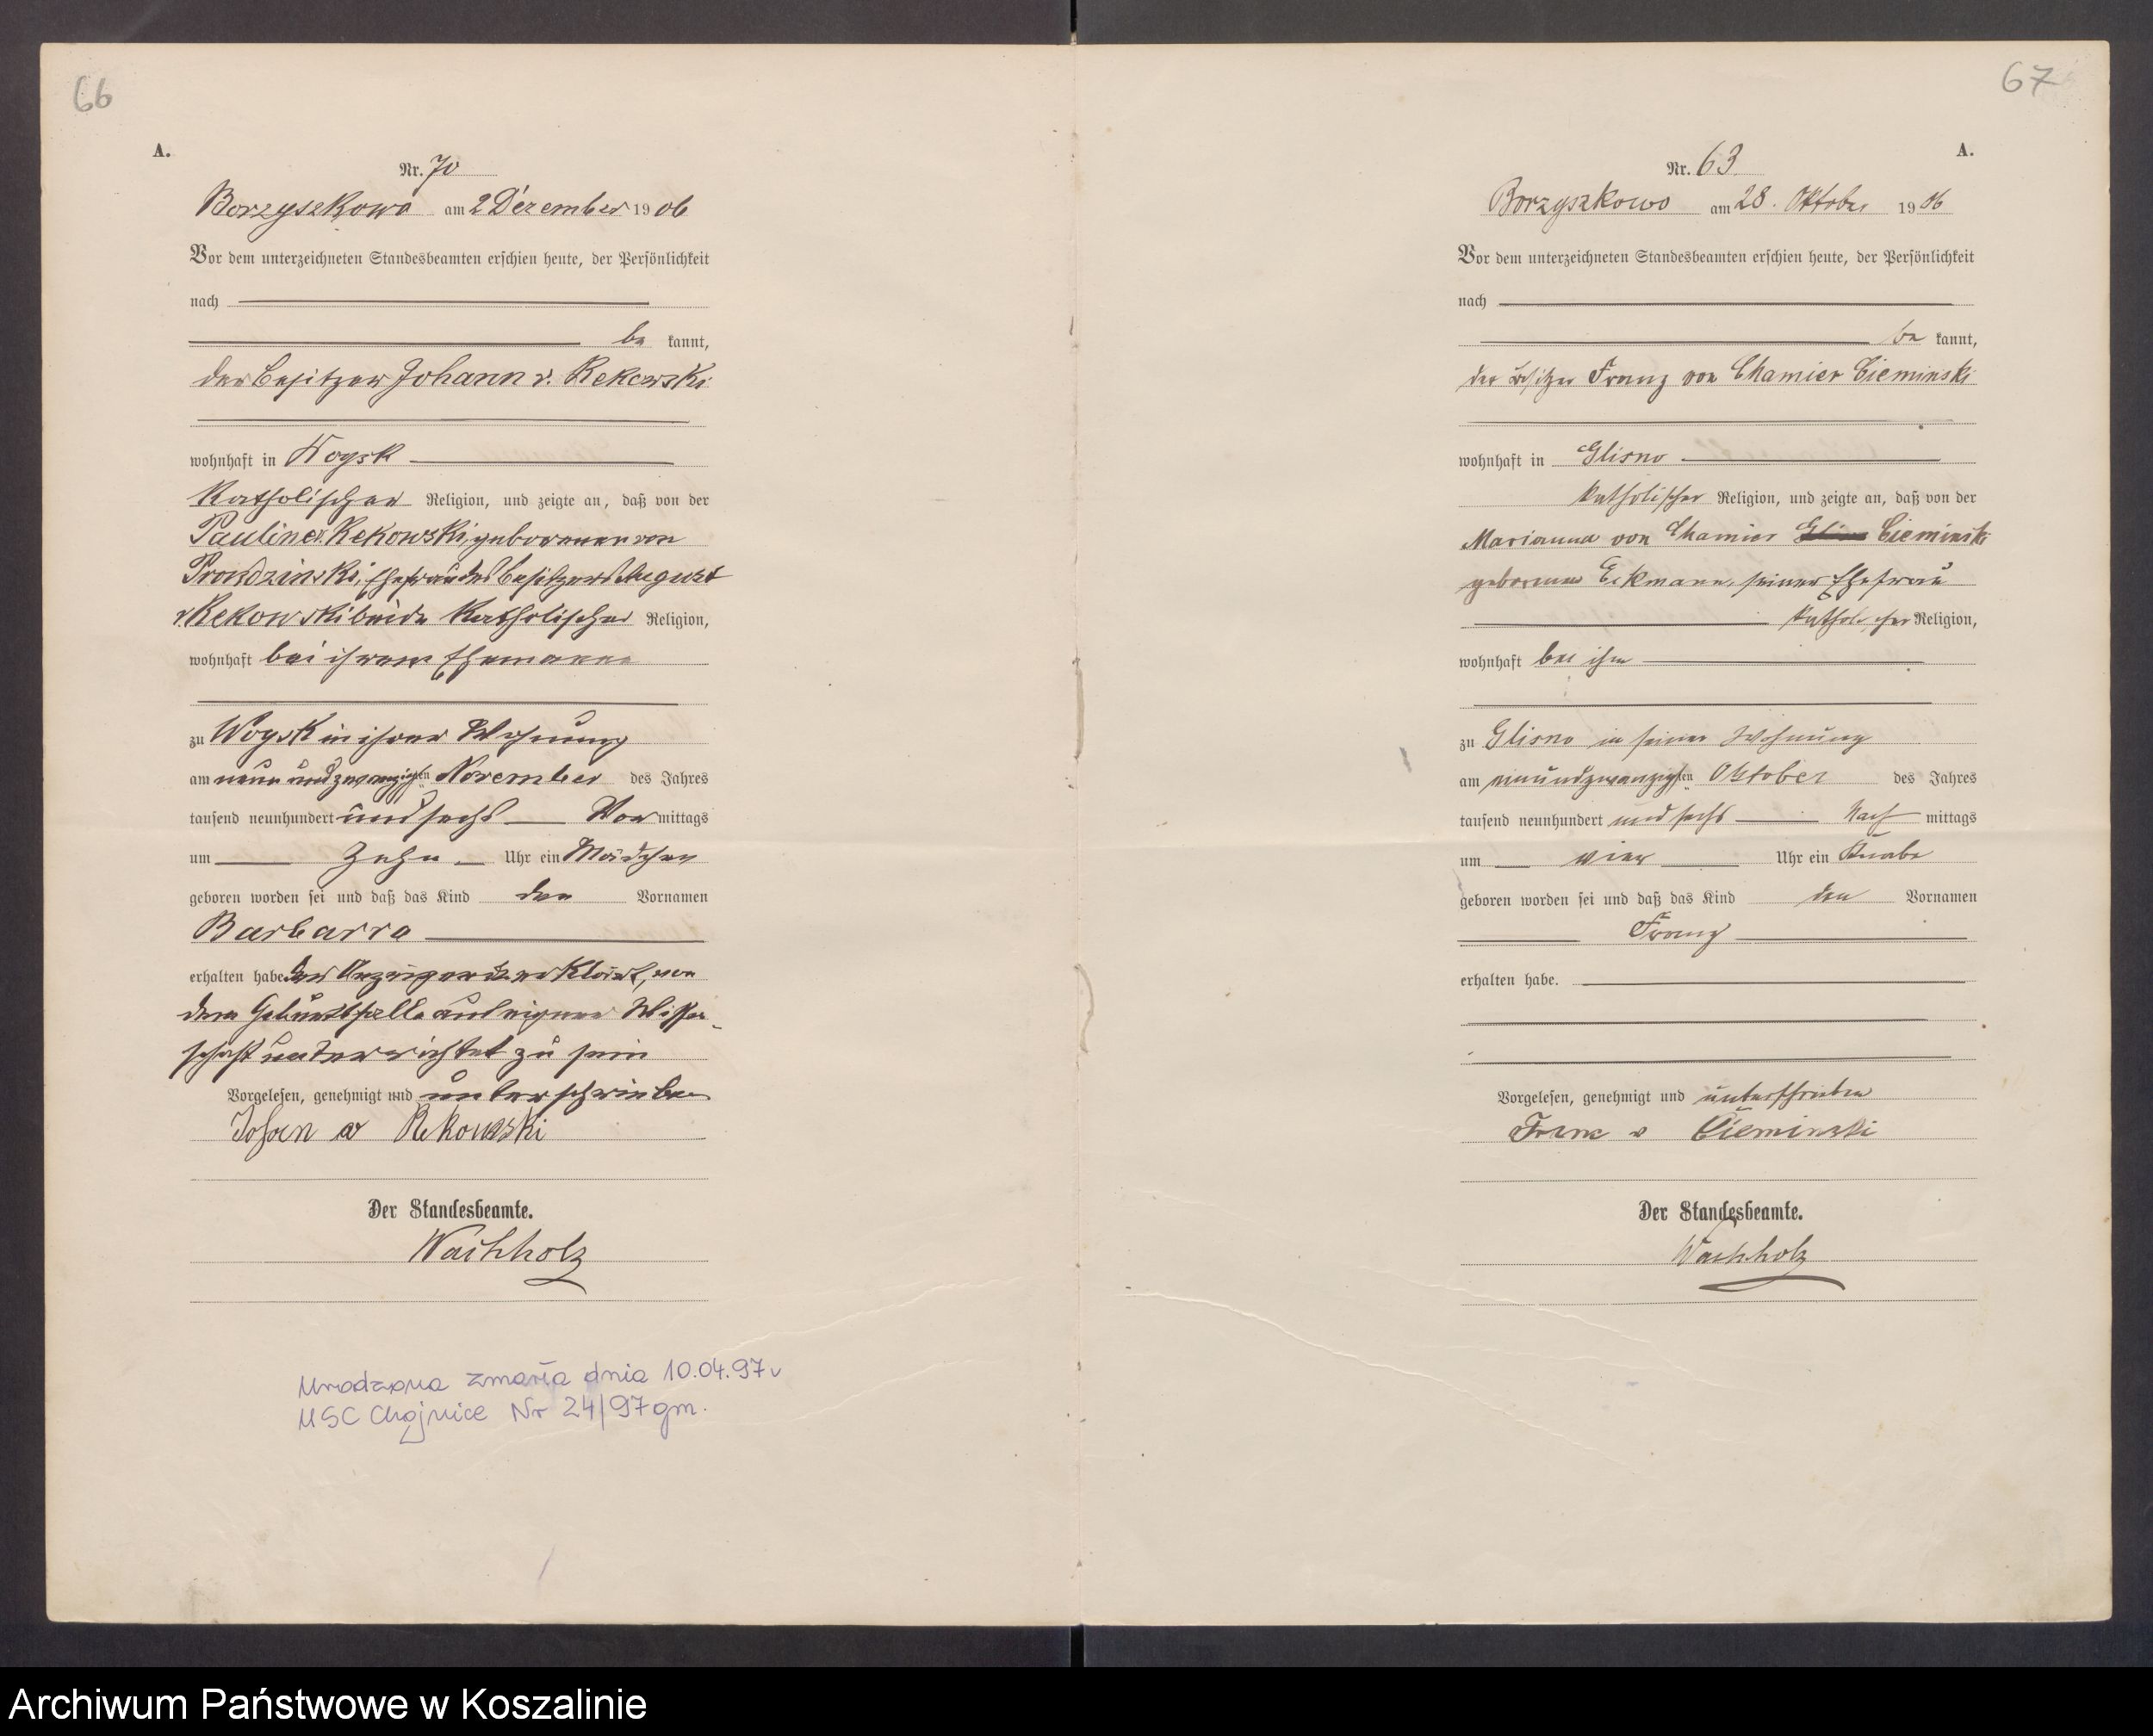 66
A.
Nr. 70
Borzyszkowo am 2 Dezember 1906
Vor dem unterzeichneten Standesbeamten erschien heute, der Persönlichkeit
nach
be kannt,
der Besitzer Johann v. Rekowski
wohnhaft in Woysk
katholischer Religion, und zeigte an, daß von der
Pauline v. Rekowski, geborenen von
Prondzinski, Ehefrau des Besitzers August
v. Rekowski beide katholischer Religion,
wohnhaft bei ihrem Ehemanne
zu Woysk in ihrer Wohnung
am neun und zwanzigsten November des Jahres
tausend neunhundert und sechs Vor mittags
um zehn Uhr ein Mädchen
geboren worden sei und daß das Kind den Vornamen
Barbarra
erhalten habe. Der Anzeigende erklärt, von
dem Geburtsfalle aus eigner Wissen-
schaft unterrichtet zu sein
Vorgelesen, genehmigt und unterschrieben
Johan v Rekowski
Der Standesbeamte.
Wachholz
Urodzona zmarła dnia 10.04.97r
USC Chojnice Nr 24/97 gm.
67
A.
Nr. 63
Borzyszkowo am 28. Oktober 1906
Vor dem unterzeichneten Standesbeamten erschien heute, der Persönlichkeit
nach
be kannt,
der Besitzer Franz von Chamier Cieminski
wohnhaft in Glisno
katholischer Religion, und zeigte an, daß von der
Marianna von Chamier Cieminski
geborenen Eckmann, seiner Ehefrau
katholischer Religion,
wohnhaft bei ihm
zu Glisno in seiner Wohnung
am einundzwanzigsten Oktober des Jahres
tausend neunhundert und sechs Nach mittags
um vier Uhr ein Knabe
geboren worden sei und daß das Kind den Vornamen
Franz
erhalten habe.
Vorgelesen, genehmigt und unterschrieben
Franz v Cieminski
Der Standesbeamte.
Wachholz
Archiwum Państwowe w Koszalinie